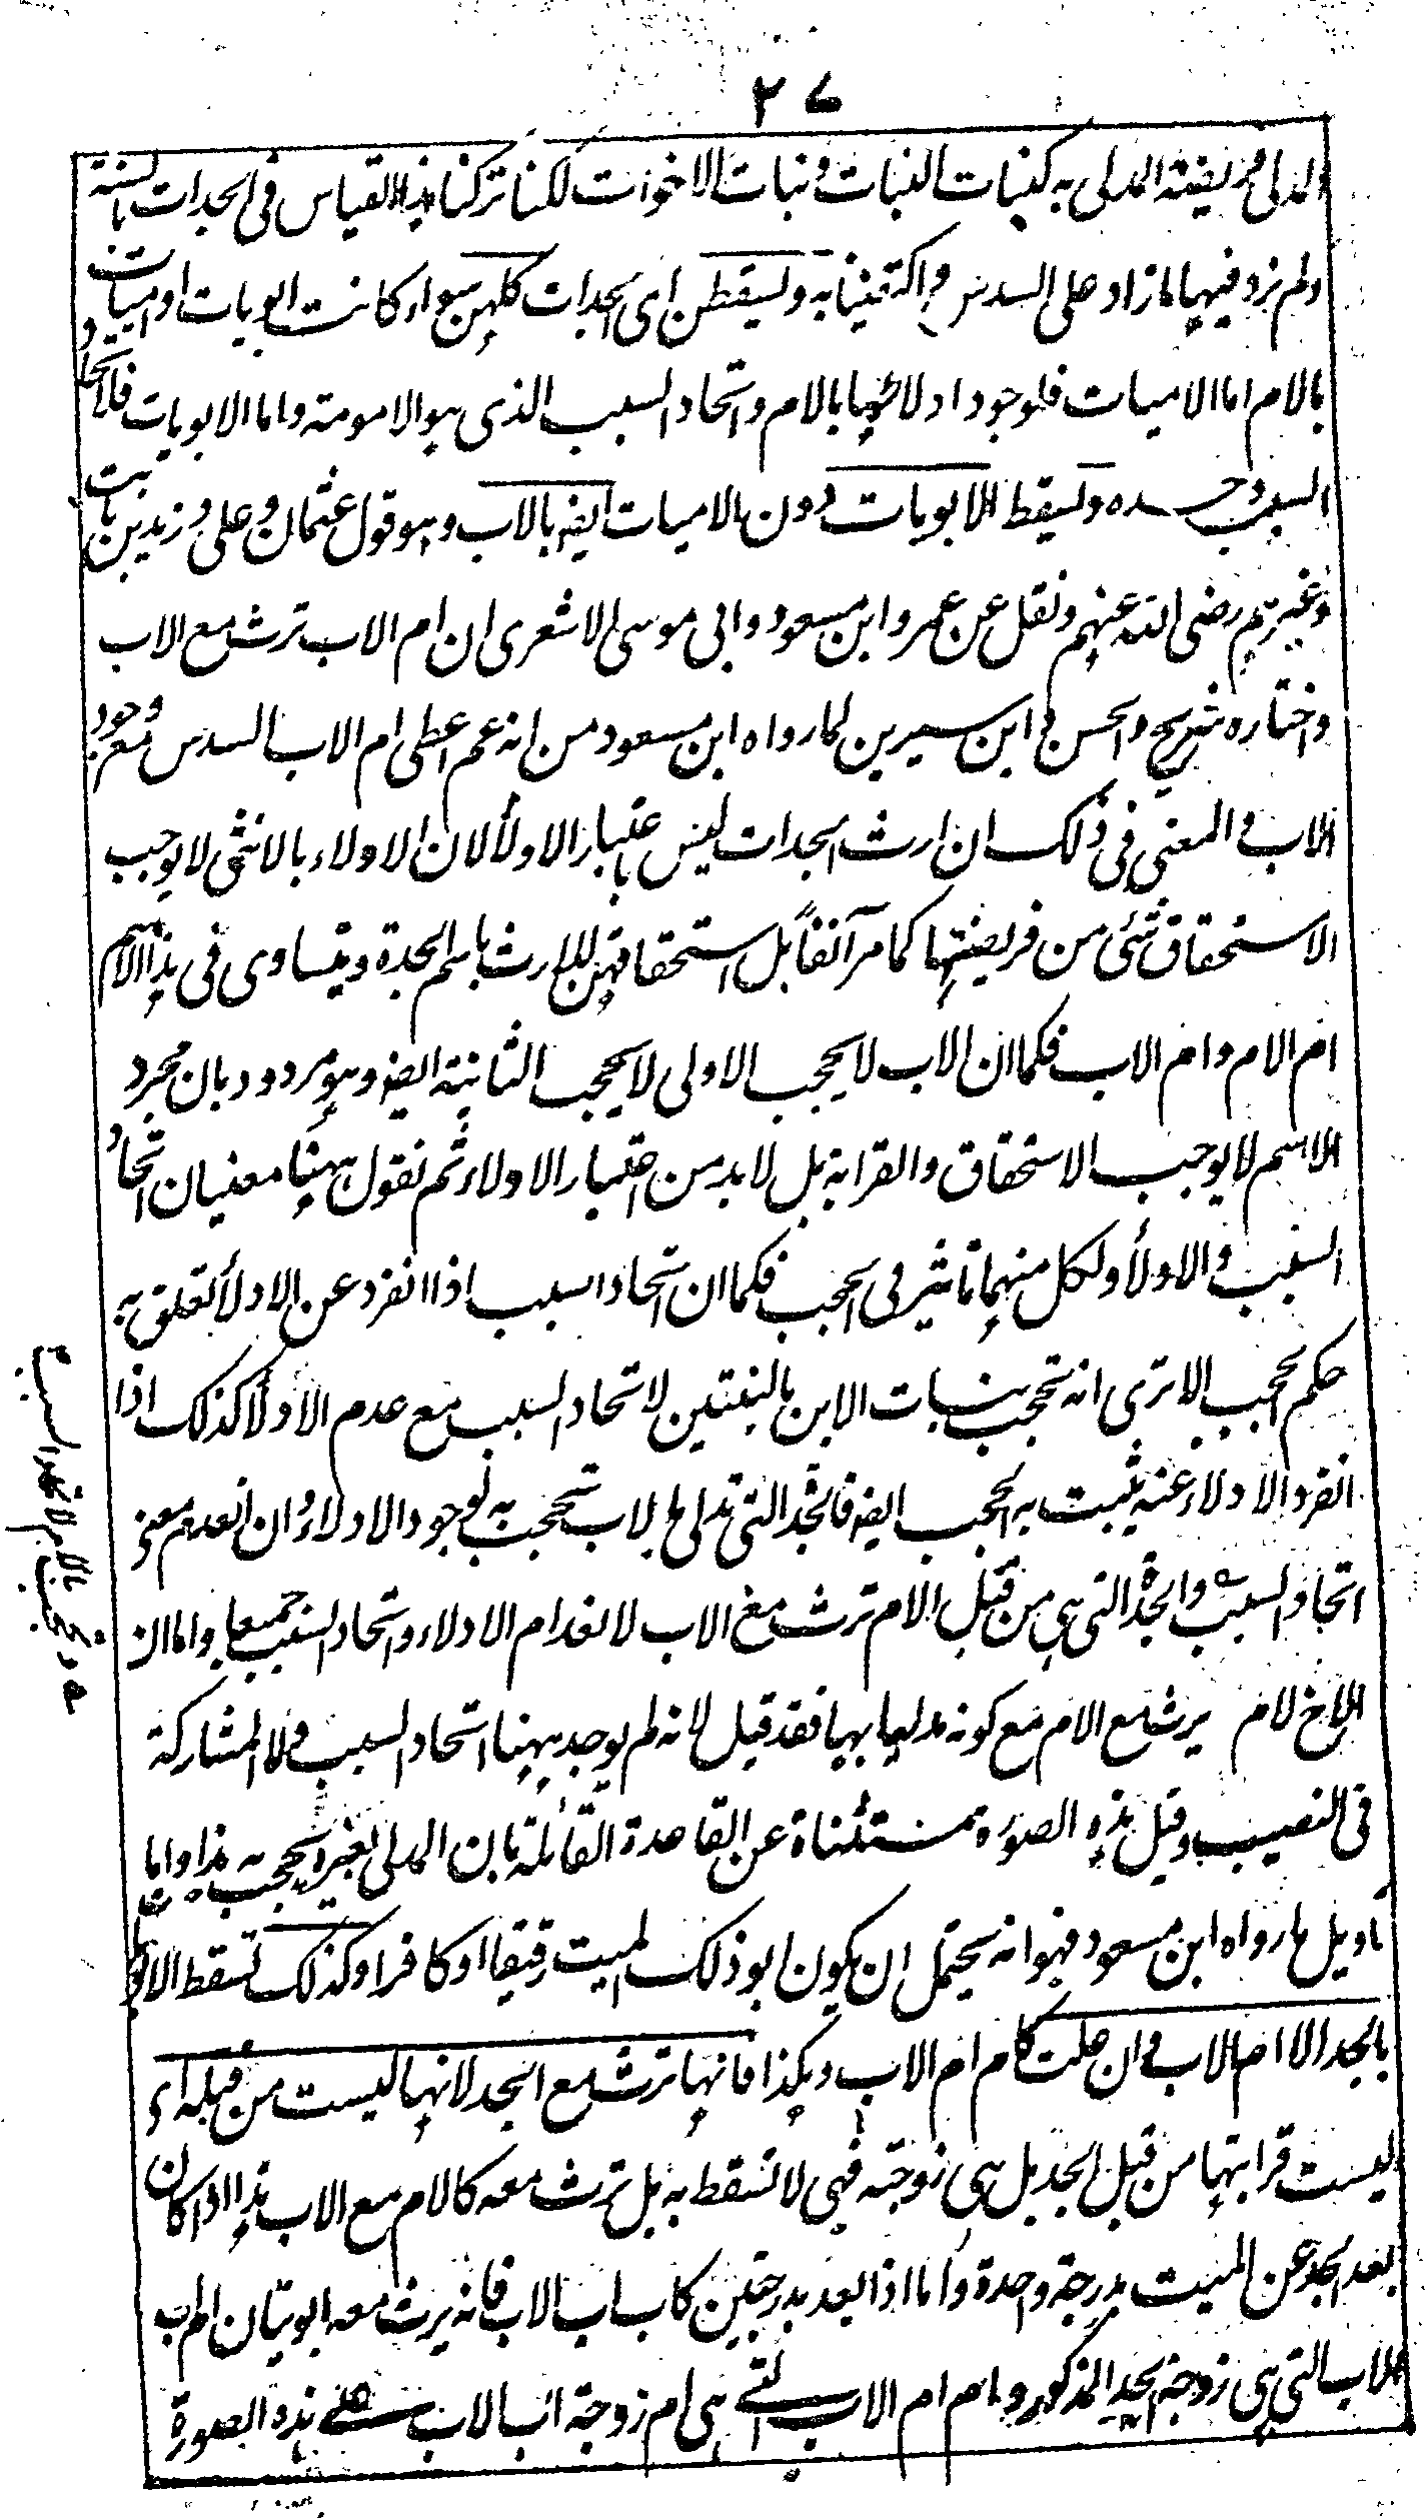 ٢٧
المدلى فريضة المدلى به كبنات البنات وبنات الاخوات لكنا تركنا هذا القياس فى الجدات بالسنة
ولم نزد فيها لما زاد على السدس واكتفينا به ويسقطن اى الجدات كلهن سواء كانت ابويات او اميات
بالام اما الاميات فلوجود ادلائها بالام واتحاد السبب الذى هو الامومة واما الابويات فلاتحاد
السبب وحده ويسقط الابويات دون الاميات ايضا بالاب وهو قول عثمان وعلى وزيد بن ثابت
وغيرهم رضى الله عنهم ونقل عن عمر وابن مسعود وابى موسى الاشعرى ان ام الاب ترث مع الاب
واختاره شريح والحسن وابن سيرين لما رواه ابن مسعود من انه عم اعطى ام الاب السدس مع وجود
الاب والمعنى فى ذلك ان ارث الجدات ليس باعتبار الاولاء لان الاولاء بالانثى لا يوجب
الاستحقاق شئى من فريضتها كما مر آنفاً بل استحقاقهن للارث باسم الجدة ويتساوى فى هذا الاسم
ام الام وام الاب فكما ان الاب لا يحجب الاولى لا يحجب الثانية ايضا وهو مردود بان مجرد
الاسم لا يوجب الاستحقاق والقرابة بل لا بد من اعتبار الاولاء ثم نقول ههنا معنيان اتحاد
السبب والاولاء ولكل منهما تاثير فى الحجب فكما ان اتحاد السبب اذا انفرد عن الادلاء تعلق به
حكم الحجب الا ترى انه تحجب بنات الابن بالبنتين لاتحاد السبب مع عدم الاولاء كذلك اذا
انفرد الادلاء عنه يثبت به الحجب ايضا فالجدة التى تدلى بالاب تحجب به لوجود الادلاء وان انعدم معنى
اتحاد السبب والجدة التى هى من قبل الام ترث مع الاب لانعدام الادلاء واتحاد السبب جميعا واما ان
الاخ لام يرث مع الام مع كونه مدليا بها فقد قيل لانه لم يوجد ههنا اتحاد السبب ولا المشاركة
فى النصيب وقيل هذه الصورة مستثناة عن القاعدة القائلة بان المدلى بغيره يحجب به هذا واما
تاويل ما رواه ابن مسعود فهو انه يحتمل ان يكون ابو ذلك الميت رقيقا او كافرا وكذلك تسقط الابويات
بالجد الا ام الاب وان علت كام ام الاب وهكذا فانها ترث مع الجد لانها ليست من قبله اى
ليست قرابتها من قبل الجد بل هى زوجته فهى لا تسقط به بل ترث معه كالام مع الاب هذا اذا كان
بعد الجد عن الميت بدرجة واحدة واما اذا بعد بدرجتين كاب اب الاب فانه يرث معه ابويتان ام اب
الاب التى هى زوجة الجد المذكور وام ام الاب التى هى ام زوجة اب الاب هذه الصورة